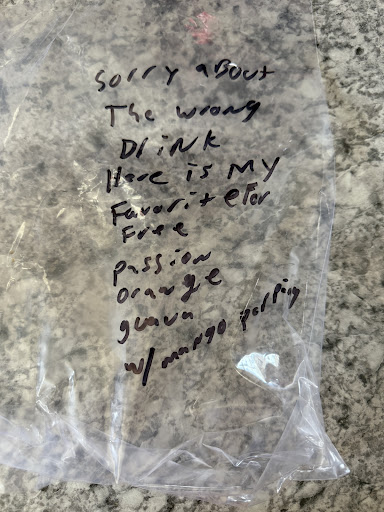 Sorry about
The wrong
Drink
Here is my
Favorite For
Free
passion
orange
guava
w/ mango popping